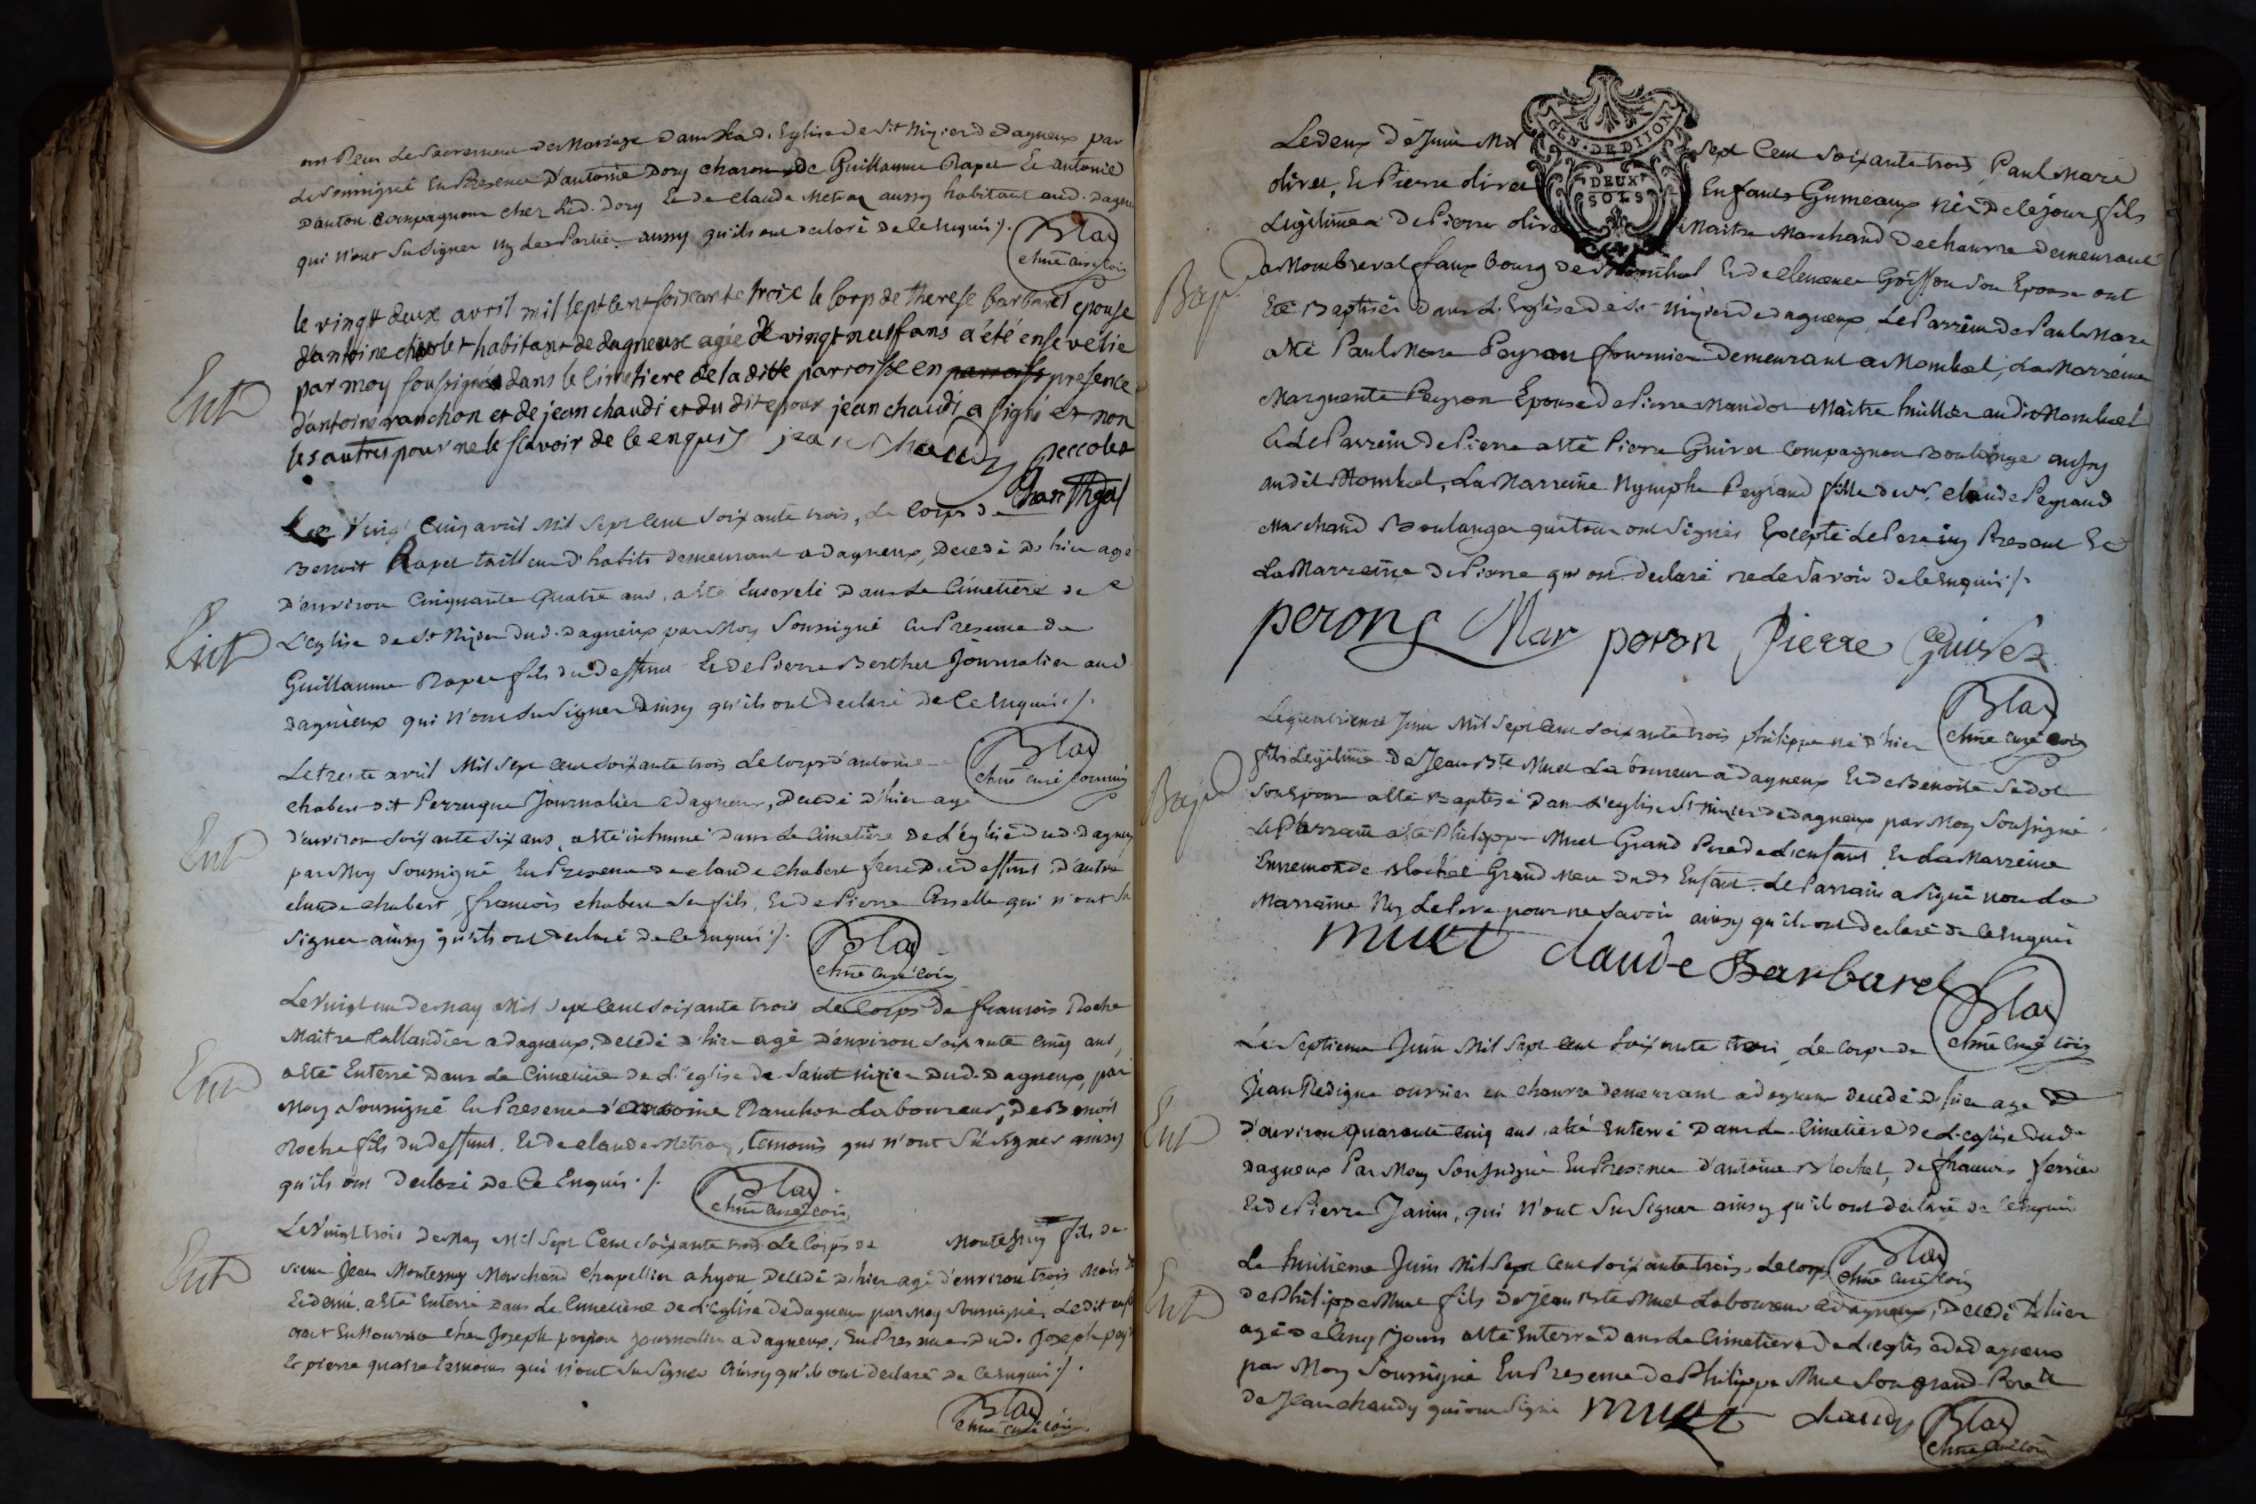 ont Reçu le Sacrement de Mariage dans lad. Eglise de St Nizier de dagneux par
le soussigné En Presence D'antoine Dory charon, de Guillaume Rapet Et antoine
Danton compagnon chez led. Dory Et de claude Metra aussy habitant aud. dagneu
qui n'ont Su Signer ny les Parties aussy qu'ils ont declaré de ce Enquis ./.
Blad
chne curé com
Ent
le vingt deux avril mil sept cent soixante troix le Corp de therese barbaret epouse
d'antoine habitant de dagneux agée de vingt neuf ans a été ensevelie
par moy soussigné dans le cimetiere de la ditte parroisse en parroisse presence
d'antoine ranchon et de jean chaudi et du dit epoux jean chaudi a signé et non
les autres pour ne le sçavoir de ce enquis jean chaudy peccolet
Ent
Le Vingt Cinq avril Mil Sept Cent Soixante trois, Le Corps de
Benoit Rapet tailleur d'habits demeurant a dagneux, Decedé D'hier agé
D'environ Cinquante Quatre ans, a été Enseveli Dans Le Cimetiere de
L'Eglise de St Nizier dud. Dagneux par Moy Soussigné En Presence de
Guillaume Rapet fils du Deffunt Et de Pierre Berthet Journalier aud
Dagneux qui n'ont Su Signer Ainsy qu'ils ont declaré de Ce Enquis ./.
Blad
chne curé commis
Ent
Le trente avril Mil Sept Cent Soixante trois Le Corps d'antoine
chabert dit Perruque Journalier a Dagneux, Decedé D'hier agé
d'environ Soixante Six ans, a été inhumé Dans Le Cimetiere De L'églisé Dud. Dagneux
par Moy Soussigné En Presence de claude chabert frere Dud deffunt D'autre
claude chabert, françois chabert Son fils, Et de Pierre qui n'ont Su
Signer ainsy qu'ils ont Declaré de Ce Enquis ./.
Blad
chne curé com
Ent
Le Vingt un de May Mil Sept Cent Soixante trois Le Corps de françois Roche
Maitre a dagneux, Decedé D'hier agé D'environ Soixante Cinq ans,
a été Enterré Dans Le Cimetiere de L'eglise de Saint Nizier Dud. Dagneux, par
Moy Soussigné En Presence d'antoine Ranchon Laboureur, De Benoit
Roche fils du Deffunt, Et de claude Metra, temoins qui n'ont Su Signer ainsy
qu'ils ont Declaré De Ce Enquis ./.
Blad
chne curé com
Ent
Le Vingt trois de May Mil Sept Cent Soixante trois Le Corps de Montessuy fils de
Sieur Jean Montessuy Marchand Chapellier a lyon Decedé D'hier agé d'environ trois Mois
Et demi, a été Enterré Dans Le Cimetiere de L'Eglise De dagneux par Moy Soussigné, Ledit enf
etoit En Nourrice chez Joseph journalier a dagneux, En Presence Dud. Joseph
Et pierre quatre temoins qui n'ont Su Signer Ainsy qu'ils ont declaré de Ce Enquis ./.
Blad
chne curé com
GEN. DE DIJON
DEUX SOLS
Bap
Le deux de Juin Mil Sept Cent Soixante trois, Paul Marc
olivet, Et Pierre olivet Enfants Gumeaux Nés De Ce jour fils
Legitimes de Pierre olivet Maitre Marchand De chanvre Demeurant
a Monbreval faux Bourg de Montluel Et de clemence Goiffon Son Epouse ont
Eté Baptisés Dans L. Eglise de St Nizier De dagneux, Le Parrein de Paul Marc
a été Paul Marc Peyron fournier Demeurant a Montluel, La Marreine
Marguerite Peyron Epouse de Pierre Mandot Maitre huillier audit Montluel
Et Le Parrein de Pierre a été Pierre Guivet Compagnon Boulanger aussy
audit Montluel, La Marreine Nymphe Peyraud fille de Sr. claude Peyraud
Marchand Boulanger qui tous ont Signés Excepté Le Pere icy Present Et
La Marreine de Pierre qui ont declaré ne le Savoir de ce Enquis ./.
perong Mar poron Pierre Guivez
Blad
chne curé com
Bap
Le Juin Mil Sept Cent Soixante trois philippe né D'hier
fils Legitime de Jean Bte Muet Laboureur a Dagneux Et de Benoite Sadot
Son Epouse a été Baptisé Dans L'eglise St Nizier de dagneux par Moy Soussigné
Le Parrain a été Philippe Muet Grand Pere de L'enfant Et La Marreine
Ennemonde Blochet Grand Mere Dudt Enfant. Le Parrain a Signé non La
Marraine Ny Le Pere pour ne Savoir ainsy qu'ils ont declaré de Ce Enquis
muet claude Barbaret
Blad
chne curé com
Ent
Le Septieme Juin Mil Sept Cent Soixante trois, Le Corps de
Jean Redigue ouvrier en chanvre demeurant a dagneux decedé D'hier agé
d'environ Quarante Cinq ans, a été Enterré Dans Le Cimetiere De L'eglise Dud.
Dagneux Par Moy Soussigné En Presence d'antoine Blochet, de françois ferrier
Et de Pierre Janin, qui n'ont Su Signer ainsy qu'il ont declaré de Ce Enquis
Blad
chne curé com
Ent
Le huitieme Juin Mil Sept Cent Soixante trois, Le Corps
de Philippe Muet fils de Jean Bte Muet Laboureur a Dagneux, Decedé D'hier
agé de Cinq Jours a été Enterré Dans Le Cimetiere De L'eglise de dagneux
par Moy Soussigné En Presence de Philippe Muet Son grand Pere Et
de Jean chaudy qui ont Signé muet chaudy
Blad
chne curé com